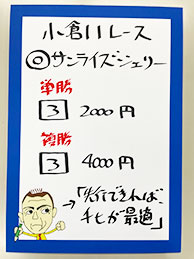 小倉11レース
◎サンライズジェリー
単勝
3 2000円
複勝
3 4000円
→「先行できれば、
チヒが最適」